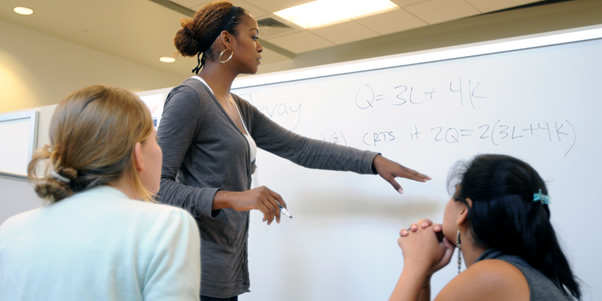 Q = 3L + 4K
CRTS if 2Q = 2(3L + 4K)